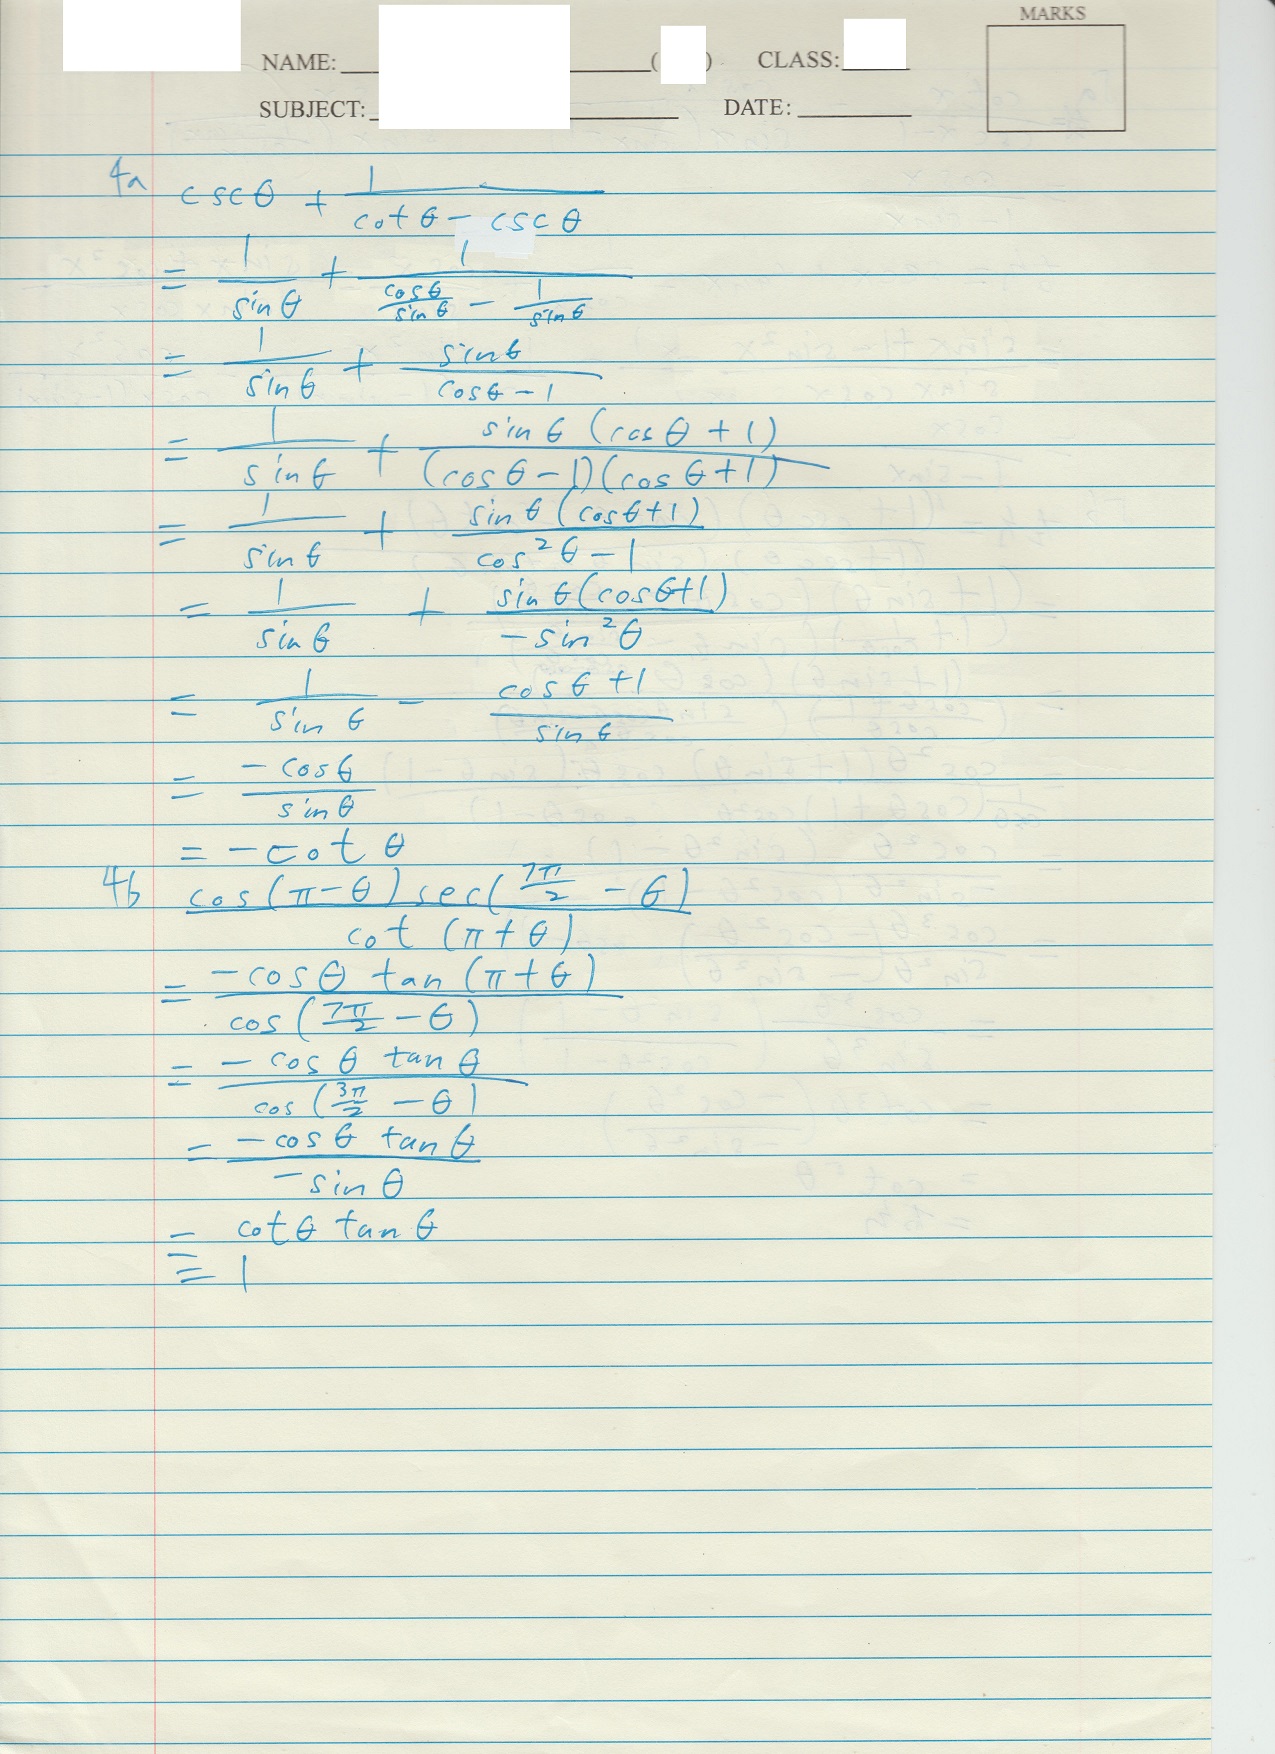 MARKS
NAME: ( ) CLASS:
SUBJECT: DATE:
4a cscθ + 1/(cotθ - cscθ)
= 1/sinθ + 1/(cosθ/sinθ - 1/sinθ)
= 1/sinθ + sinθ/(cosθ - 1)
= 1/sinθ + sinθ(cosθ + 1)/((cosθ - 1)(cosθ + 1))
= 1/sinθ + sinθ(cosθ+1)/(cos²θ - 1)
= 1/sinθ + sinθ(cosθ+1)/(-sin²θ)
= 1/sinθ - (cosθ + 1)/sinθ
= -cosθ/sinθ
= -cotθ
4b cos(π-θ)sec(7π/2 - θ)/cot(π+θ)
= -cosθ tan(π+θ)/cos(7π/2 - θ)
= -cosθ tanθ/cos(3π/2 - θ)
= -cosθ tanθ/-sinθ
= cotθ tanθ
= 1